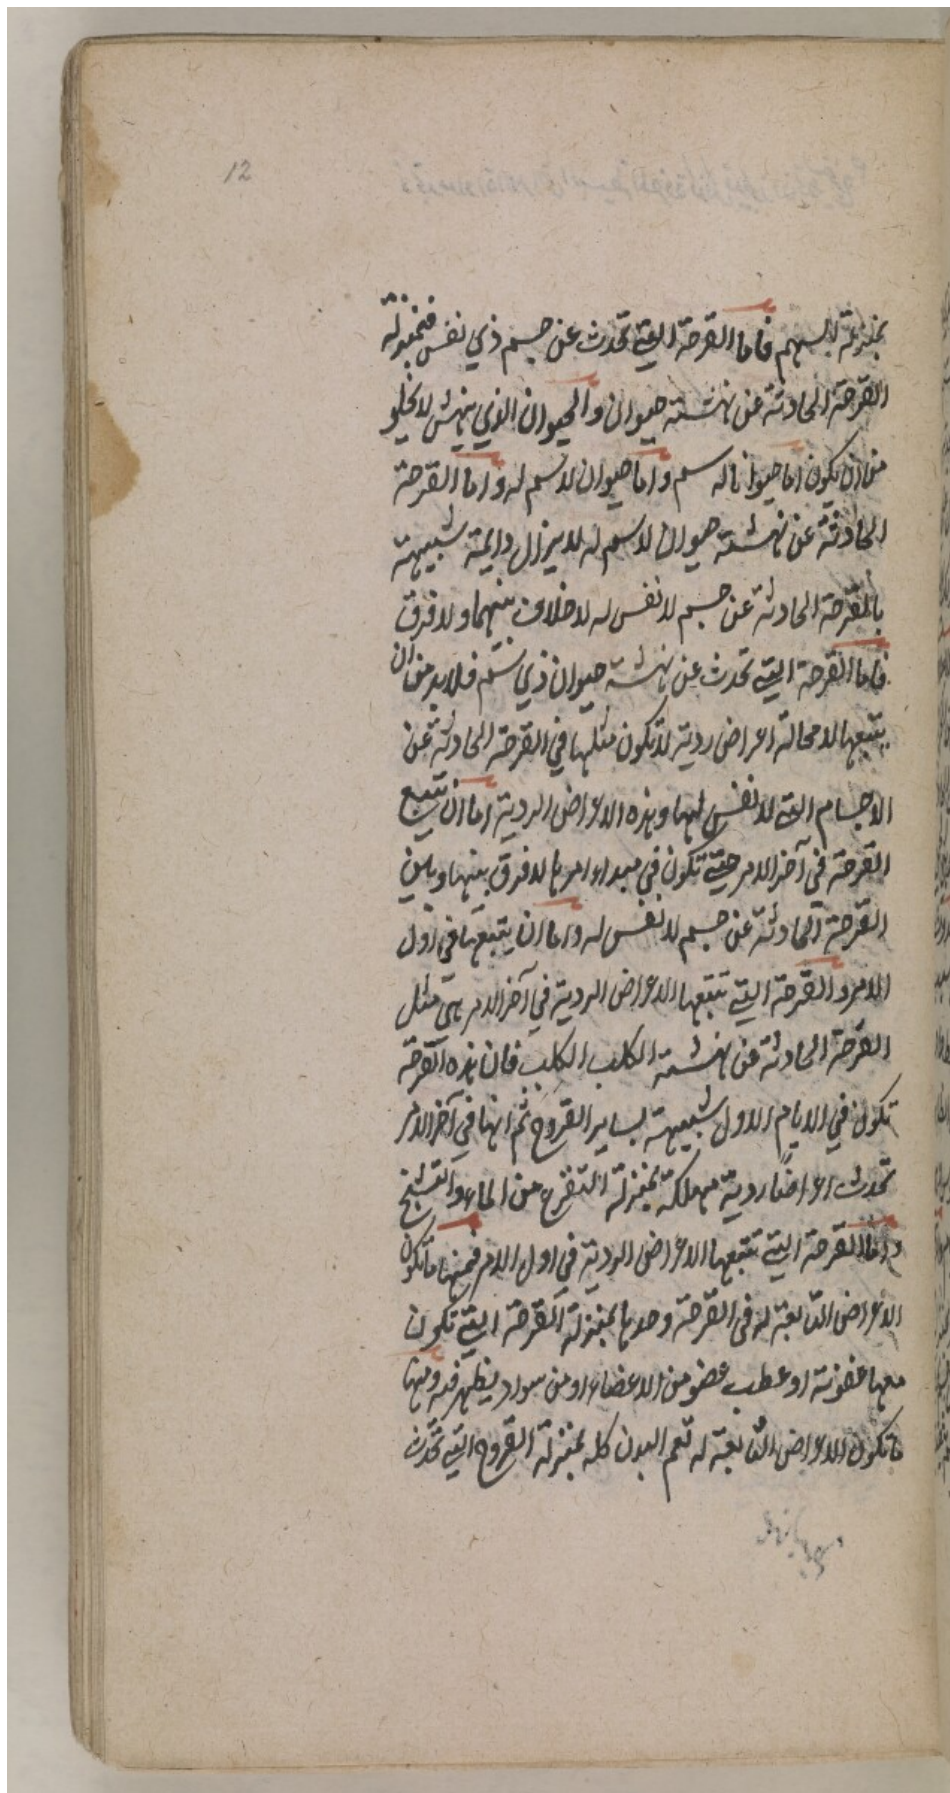 12
بمنزلة السهم فاما القرحة التي تحدث عن جسم ذي نفس فبمنزلة
القرحة الحادثة عن نهشة حيوان والحيوان الذي ينهش لا يخلو
من ان يكون اما حيوانا له سم واما حيوان لا سم له واما القرحة
الحادثة عن نهشة حيوان لا سم له لا يزال دايمة شبيهة
بالقرحة الحادثة عن جسم لا نفس له لا خلاف بينهما ولا فرق
فاما القرحة التي تحدث عن نهشة حيوان ذي سم فلا بد من ان
يتبعها لا محالة اعراض ردية لا تكون مثلها في القرحة الحادثة عن
الاجسام التي لا نفس لها وهذه الاعراض الردية اما ان تتبع
القرحة في آخر الامر حتي تكون في مبداء امرها لا فرق بينها وبين
القرحة الحادثة عن جسم لا نفس له واما ان يتبعها في اول
الامر والقرحة التي تتبعها الاعراض الردية في آخر الامر هي مثل
القرحة الحادثة عن نهشة الكلب الكلب فان هذه القرحة
تكون في الايام الاول شبيهة بساير القروح ثم انها في آخر الامر
تحدث اعراضا ردية مهلكة بمنزلة التفزع من الماء والتشنج
واما القرحة التي تتبعها الاعراض الردية في اول الامر فمنها ما تكون
الاعراض التابعة له في القرحة وحدها بمنزلة القرحة التي تكون
معها عفونة او عطب عضو من الاعضاء او من سواد يظهر فيه ومنها
ما تكون الاعراض التابعة له تعم البدن كله بمنزلة القروح التي تحدث